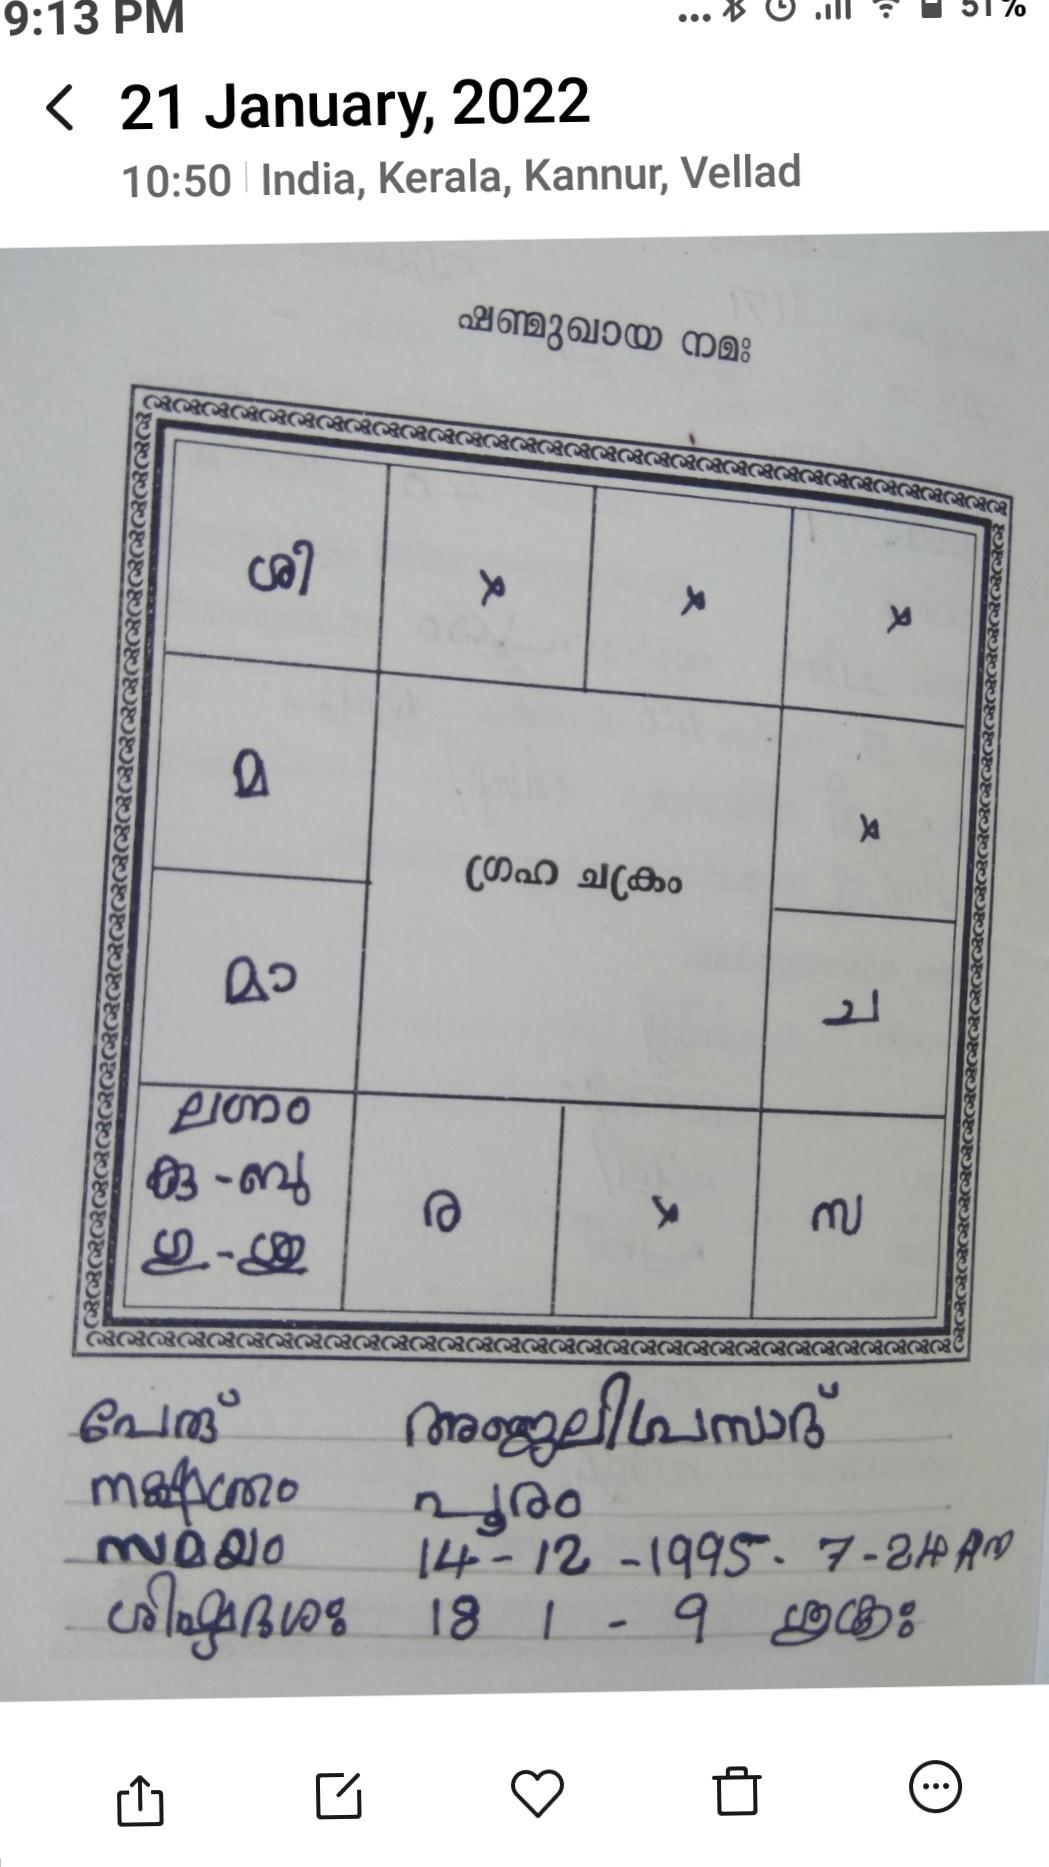 9:13 PM
... 51%
21 January, 2022
10:50 India, Kerala, Kannur, Vellad
ഷണ്മുഖായ നമഃ
ശി x x x
മ x
ഗ്രഹ ചക്രം
മാ ച
ലഗ്നം
കു - ബു
ഗു - ശു
ര x സ
പേര് അഞ്ജലിപ്രസാദ്
നക്ഷത്രം പൂരം
സമയം 14-12-1995. 7-24 AM
ശിഷ്ടദശഃ 18 1 - 9 ശുക്രഃ